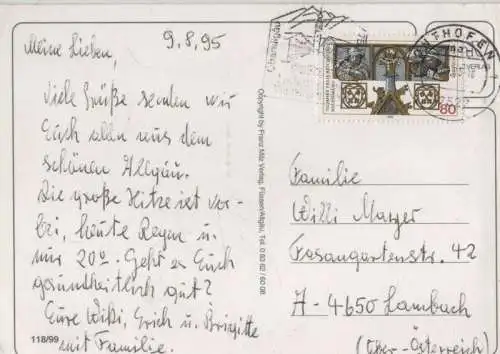 9.8.95
Meine Lieben,
Viele Grüße senden wir
Euch allen aus dem
schönen Allgäu.
Die große Hitze ist vor-
bei, heute Regen u.
nur 20°. Geht es Euch
gesundheitlich gut?
Eure Wißi, Erich u. Brigitte
mit Familie.
118/99
Copyright by Franz Milz Verlag, Füssen/Allgäu, Tel. 0 83 62 / 60 08
80
Familie
Willi Marger
Fasangartenstr. 42
A-4650 Lambach
(Ober-Österreich)